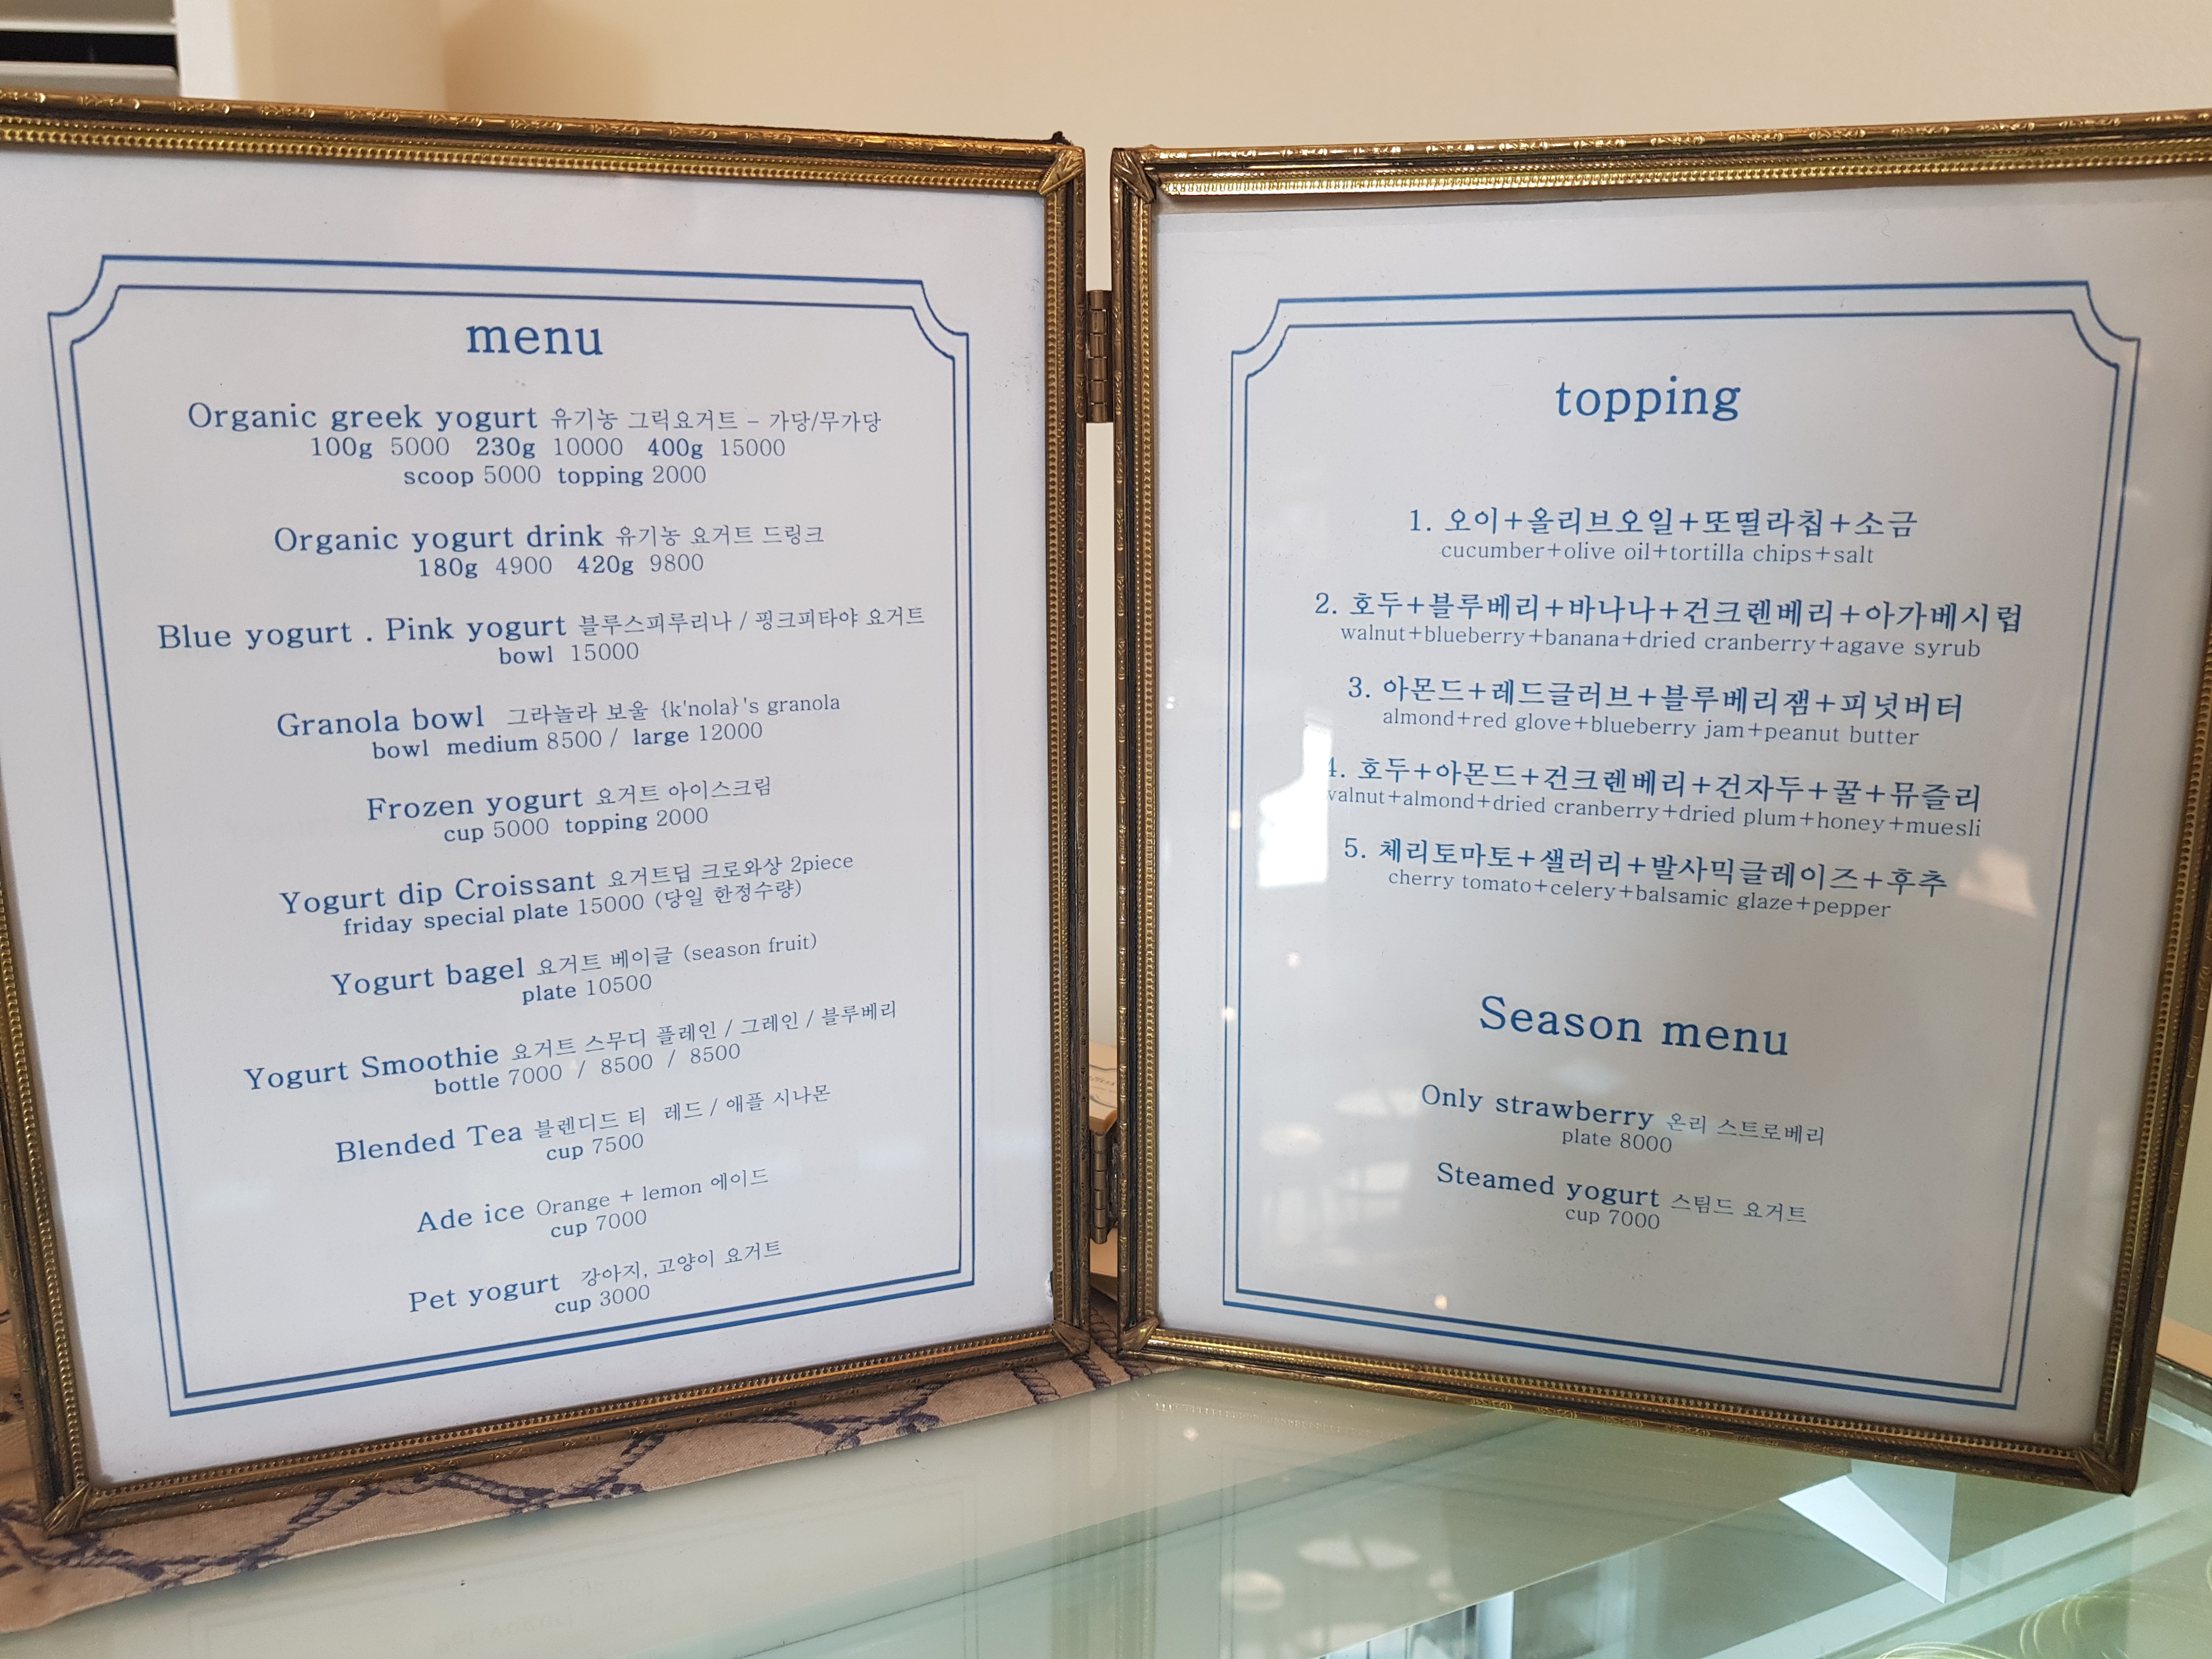 menu
Organic greek yogurt 유기농 그릭요거트 - 가당/무가당
100g 5000 230g 10000 400g 15000
scoop 5000 topping 2000
Organic yogurt drink 유기농 요거트 드링크
180g 4900 420g 9800
Blue yogurt . Pink yogurt 블루스피루리나 / 핑크피타야 요거트
bowl 15000
Granola bowl 그라놀라 보울 {k'nola}'s granola
bowl medium 8500 / large 12000
Frozen yogurt 요거트 아이스크림
cup 5000 topping 2000
Yogurt dip Croissant 요거트딥 크로와상 2piece
friday special plate 15000 (당일 한정수량)
Yogurt bagel 요거트 베이글 (season fruit)
plate 10500
Yogurt Smoothie 요거트 스무디 플레인 / 그레인 / 블루베리
bottle 7000 / 8500 / 8500
Blended Tea 블렌디드 티 레드 / 애플 시나몬
cup 7500
Ade ice Orange + lemon 에이드
cup 7000
Pet yogurt 강아지, 고양이 요거트
cup 3000
topping
1. 오이+올리브오일+또띨라칩+소금
cucumber+olive oil+tortilla chips+salt
2. 호두+블루베리+바나나+건크렌베리+아가베시럽
walnut+blueberry+banana+dried cranberry+agave syrub
3. 아몬드+레드글러브+블루베리잼+피넛버터
almond+red glove+blueberry jam+peanut butter
4. 호두+아몬드+건크렌베리+건자두+꿀+뮤즐리
walnut+almond+dried cranberry+dried plum+honey+muesli
5. 체리토마토+샐러리+발사믹글레이즈+후추
cherry tomato+celery+balsamic glaze+pepper
Season menu
Only strawberry 온리 스트로베리
plate 8000
Steamed yogurt 스팀드 요거트
cup 7000